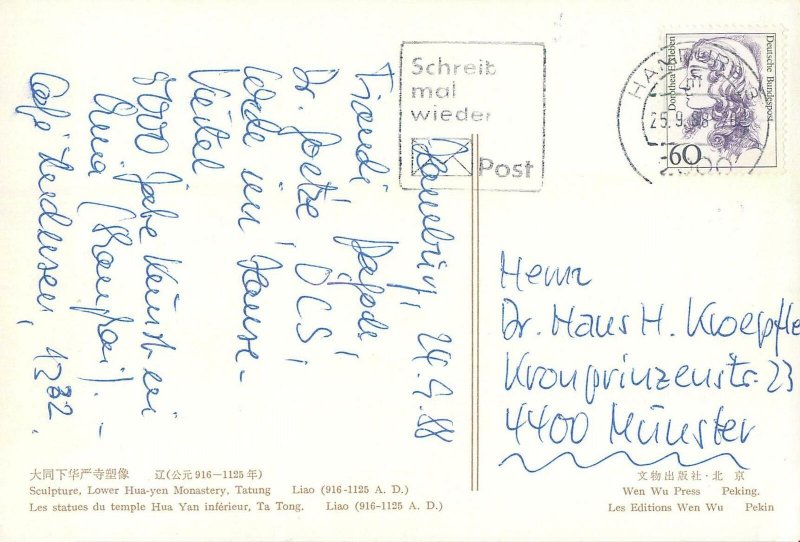 Schreib
mal
wieder
Post
HAMBURG
25.9.88
2000
Dorothea Erxleben
Deutsche Bundespost
60
Hamburg, 24.9.88
Tiandi Pagode
Dr. Goetze DCS
im Hause-
Viertel
Jahre Kunst
China
1232.
Herrn
Dr. Hans H. Kroepfle
Kronprinzenstr. 23
4400 Münster
大同下华严寺塑像 辽(公元916—1125年)
Sculpture, Lower Hua-yen Monastery, Tatung Liao (916-1125 A. D.)
Les statues du temple Hua Yan inférieur, Ta Tong. Liao (916-1125 A. D.)
文物出版社·北京
Wen Wu Press Peking.
Les Editions Wen Wu Pekin